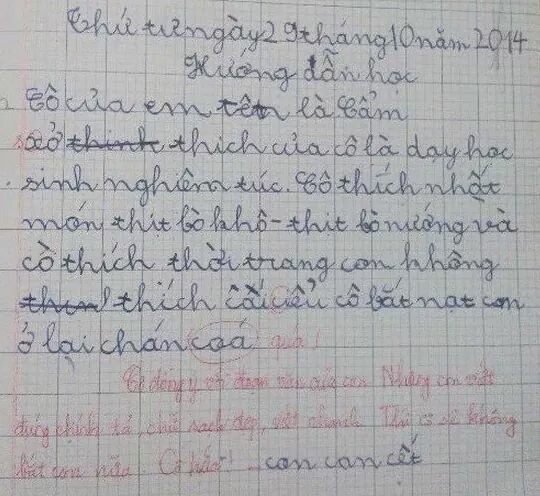 Thứ tư ngày 29 tháng 10 năm 2014
Hướng dẫn học
Cô của em tên là Cẩm
sở thinh thich của cô là dạy học
sinh nghiêm túc. Cô thích nhất
món thịt bò khô - thịt bò nướng và
cô thích thời trang con không
thích cái iểu cô bắt nạt con
ở lại chán coá quá!
Cô đồng ý với đoạn văn của con Nhưng con viết
đúng chính tả, chữ sạch đẹp, viết nhanh Thì cô sẽ không
bắt con nữa. Cô hứa!
con can cết